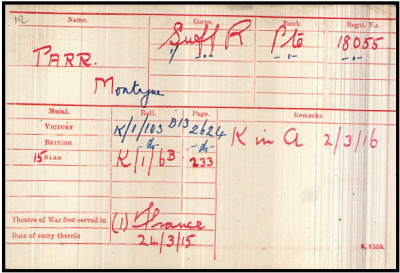 Name. Corps. Rank. Regtl. No.
PARR. Suff R Pte 18055
Montague
Medal. Roll. Page. Remarks.
VICTORY K/1/103 B13 2624 K in A 2/3/16
BRITISH -do- -do-
15 STAR K/1/6B 233
Theatre of War first served in (1) France
Date of entry therein 24/3/15
K. 1380.